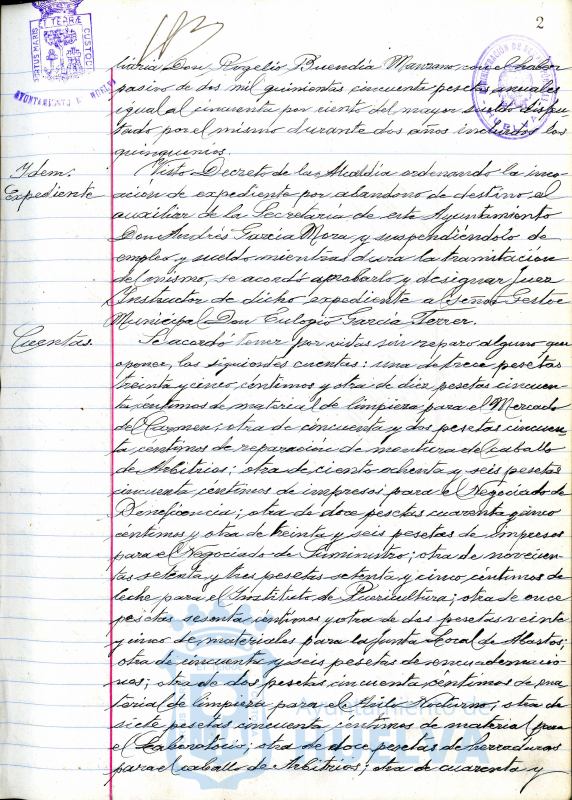 2
liaria Don Rogelio Buendía Manzano, con el haber
pasivo de dos mil quinientas cincuenta pesetas anuales
igual al cincuenta por ciento del mayor sueldo disfru-
tado por el mismo durante dos años incluidos los
quinquenios.
Idem.
Expediente
Visto Decreto de la Alcaldía ordenando la inco-
ación de expediente por abandono de destino, al
auxiliar de la Secretaría de este Ayuntamiento
Don Andrés García Mora y suspendiéndolo de
empleo y sueldo mientras dura la tramitación
del mismo, se acordó aprobarlo y designar Juez
Instructor de dicho expediente al Señor Gestor
Municipal Don Eulogio García Ferrer.
Cuentas.
Se acordó tener por vistas sin reparo alguno que
oponer, las siguientes cuentas: una de trece pesetas
treinta y cinco céntimos y otra de diez pesetas cincuen-
ta céntimos de material de limpieza para el Mercado
del Carmen; otra de cincuenta y dos pesetas cincuen-
ta céntimos de reparación de montura del caballo
de Arbitrios; otra de ciento ochenta y seis pesetas
cincuenta céntimos de impresos para el Negociado de
Beneficencia; otra de doce pesetas cuarenta y cinco
céntimos y otra de treinta y seis pesetas de impresos
para el Negociado de Suministro; otra de novecien-
tas setenta y tres pesetas setenta y cinco céntimos de
leche para el Instituto de Puericultura; otra de once
pesetas sesenta céntimos y otra de dos pesetas veinte
y cinco de materiales para la Junta Local de Abastos;
otra de cincuenta y seis pesetas de encuadernacio-
nes; otra de dos pesetas cincuenta céntimos de ma-
terial de limpieza para el Asilo Nocturno; otra de
siete pesetas cincuenta céntimos de material para
el Laboratorio; otra de doce pesetas de herraduras
para el caballo de Arbitrios; otra de cuarenta y
AYUNTAMIENTO DE HUELVA
Ayuntamiento de
HUELVA